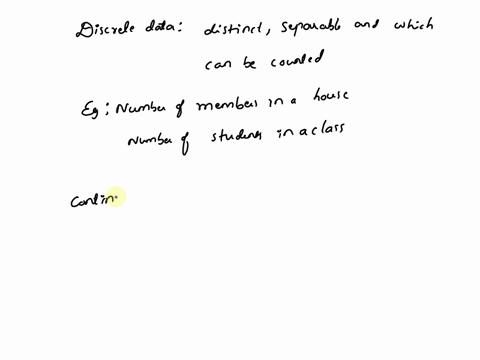 Discrete data: distinct, separable and which
can be counted
Eg: Number of members in a house
Number of students in a class
Contin